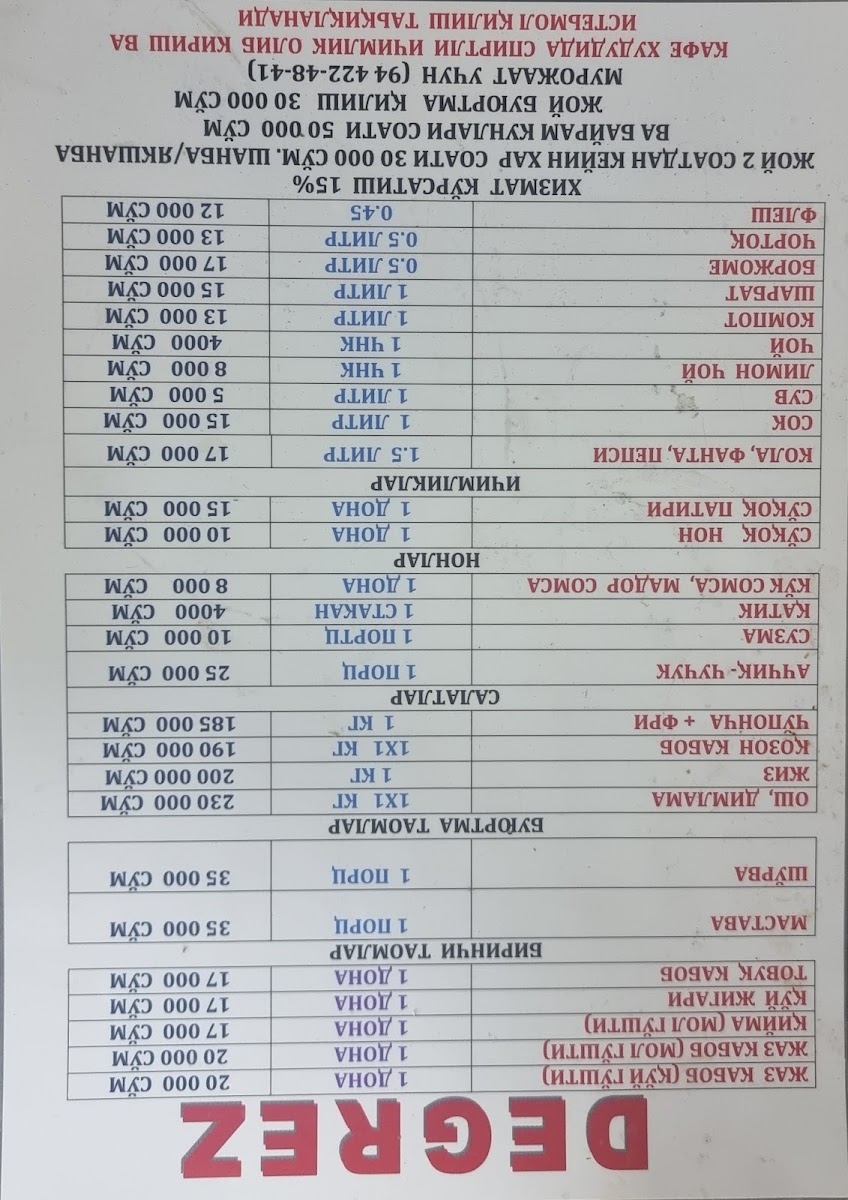 DEGREZ
ЖАЗ КАБОБ (ҚЎЙ ГЎШТИ) 1 ДОНА 20 000 СЎМ
ЖАЗ КАБОБ (МОЛ ГЎШТИ) 1 ДОНА 20 000 СЎМ
ҚИЙМА (МОЛ ГЎШТИ) 1 ДОНА 17 000 СЎМ
ҚЎЙ ЖИГАРИ 1 ДОНА 17 000 СЎМ
ТОВУҚ КАБОБ 1 ДОНА 17 000 СЎМ
БИРИНЧИ ТАОМЛАР
МАСТАВА 1 ПОРЦ 35 000 СЎМ
ШЎРВА 1 ПОРЦ 35 000 СЎМ
БУЮРТМА ТАОМЛАР
ОШ, ДИМЛАМА 1X1 КГ 230 000 СЎМ
ЖИЗ 1 КГ 200 000 СЎМ
ҚОЗОН КАБОБ 1X1 КГ 190 000 СЎМ
ЧУПОНЧА + ФРИ 1 КГ 185 000 СЎМ
САЛАТЛАР
АЧЧИҚ- ЧУЧУК 1 ПОРЦ 25 000 СЎМ
СУЗМА 1 ПОРТЦ 10 000 СЎМ
ҚАТИК 1 СТАКАН 4000 СЎМ
КЎК СОМСА, МАДОР СОМСА 1 ДОНА 8 000 СЎМ
НОНЛАР
СЎҚОҚ НОН 1 ДОНА 10 000 СЎМ
СЎҚОҚ ПАТИРИ 1 ДОНА 15 000 СЎМ
ИЧИМЛИКЛАР
КОЛА, ФАНТА, ПЕПСИ 1.5 ЛИТР 17 000 СЎМ
СОК 1 ЛИТР 15 000 СЎМ
СУВ 1 ЛИТР 5 000 СЎМ
ЛИМОН ЧОЙ 1 ЧНК 8 000 СЎМ
ЧОЙ 1 ЧНК 4000 СЎМ
КОМПОТ 1 ЛИТР 13 000 СЎМ
ШАРБАТ 1 ЛИТР 15 000 СЎМ
БОРЖОМЕ 0.5 ЛИТР 17 000 СЎМ
ЧОРТОҚ 0.5 ЛИТР 13 000 СЎМ
ФЛЕШ 0.45 12 000 СЎМ
ХИЗМАТ КЎРСАТИШ 15%
ЖОЙ 2 СОАТДАН КЕЙИН ХАР СОАТИ 30 000 СЎМ. ШАНБА/ЯКШАНБА
ВА БАЙРАМ КУНЛАРИ СОАТИ 50 000 СЎМ
ЖОЙ БУЮРТМА ҚИЛИШ 30 000 СЎМ
МУРОЖААТ УЧУН (94 422-48-41)
КАФЕ ХУДУДИДА СПИРТЛИ ИЧИМЛИК ОЛИБ КИРИШ ВА
ИСТЕЬМОЛ ҚИЛИШ ТАЬҚИҚЛАНАДИ